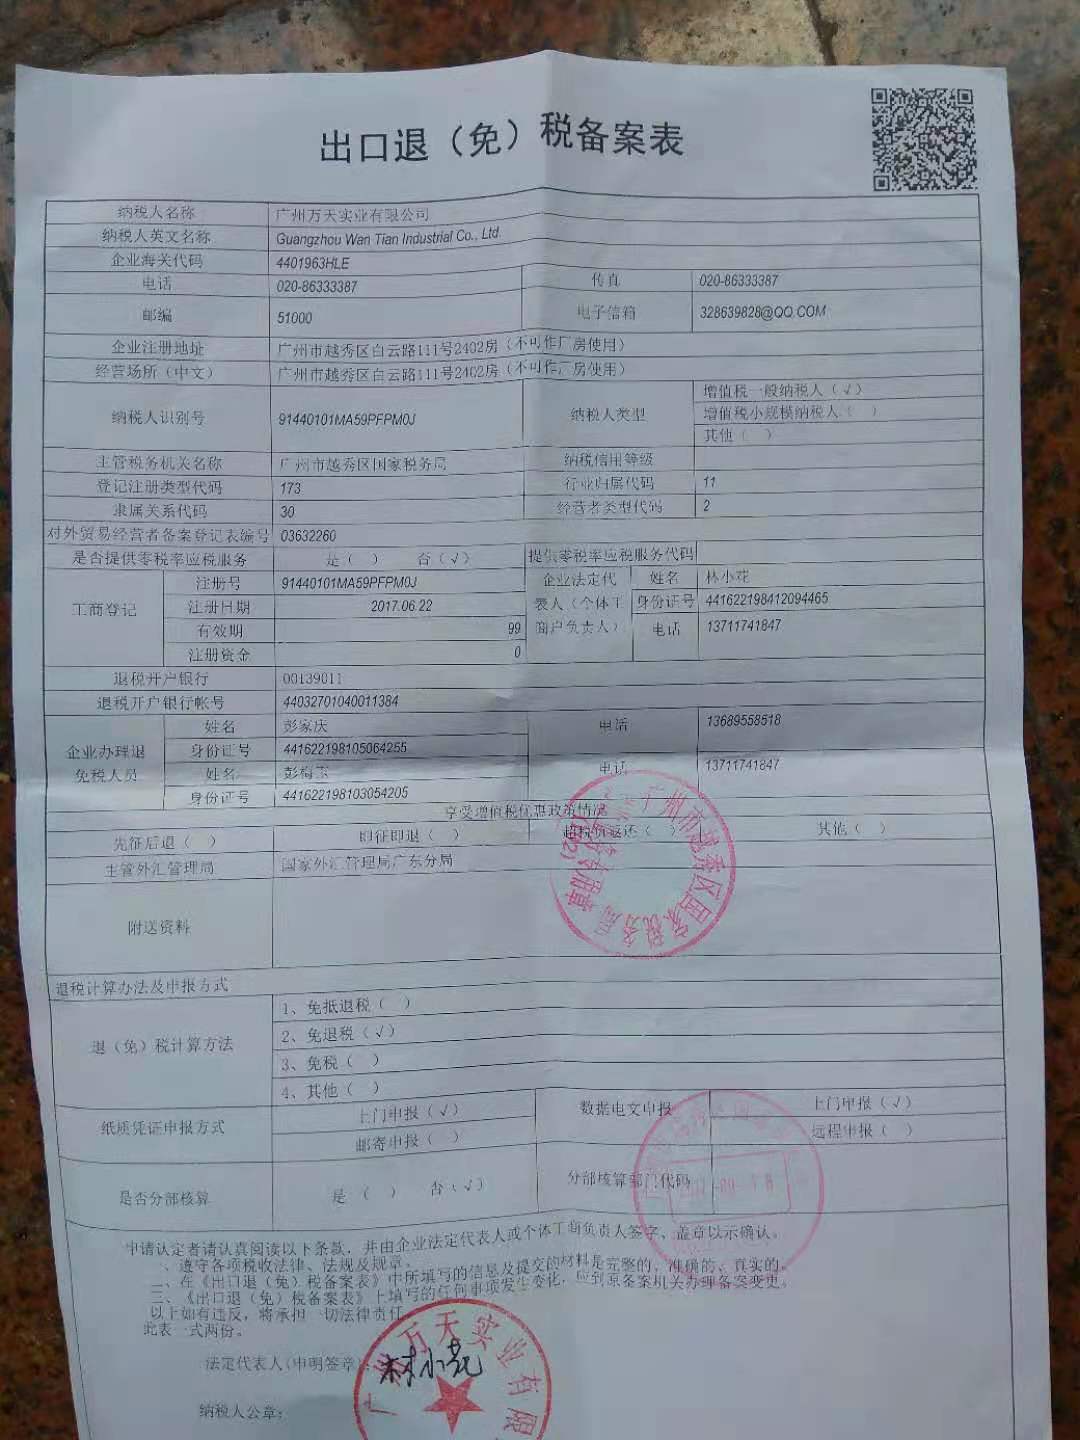 出口退（免）税备案表
纳税人名称 广州万天实业有限公司
纳税人英文名称 Guangzhou Wan Tian Industrial Co., Ltd.
企业海关代码 4401963HLE
电话 020-86333387 传真 020-86333387
邮编 51000 电子信箱 328639828@QQ.COM
企业注册地址 广州市越秀区白云路111号2402房（不可作厂房使用）
经营场所（中文） 广州市越秀区白云路111号2402房（不可作厂房使用）
纳税人识别号 91440101MA59PFPM0J 纳税人类型 增值税一般纳税人（√）
增值税小规模纳税人（ ）
其他（ ）
主管税务机关名称 广州市越秀区国家税务局 纳税信用等级
登记注册类型代码 173 行业归属代码 11
隶属关系代码 30 经营者类型代码 2
对外贸易经营者备案登记表编号 03632260
是否提供零税率应税服务 是（ ） 否（√） 提供零税率应税服务代码
工商登记 注册号 91440101MA59PFPM0J 企业法定代表人（个体工商户负责人） 姓名 林小花
注册日期 2017.06.22 身份证号 441622198412094465
有效期 99 电话 13711741847
注册资金 0
退税开户银行 00139011
退税开户银行帐号 44032701040011384
企业办理退免税人员 姓名 彭家庆 电话 13689558518
身份证号 441622198105064255
姓名 彭梅玉 电话 13711741847
身份证号 441622198103054205
享受增值税优惠政策情况
先征后退（ ） 即征即退（ ） 超税负返还（ ） 其他（ ）
主管外汇管理局 国家外汇管理局广东分局
附送资料
广州市越秀区国家税务局
退税计算办法及申报方式
退（免）税计算方法 1、免抵退税（ ）
2、免退税（√）
3、免税（ ）
4、其他（ ）
纸质凭证申报方式 上门申报（√） 数据电文申报 上门申报（√）
邮寄申报（ ） 远程申报（ ）
是否分部核算 是（ ） 否（√） 分部核算部门代码
申请认定者请认真阅读以下条款，并由企业法定代表人或个体工商负责人签字、盖章以示确认。
一、遵守各项税收法律、法规及规章。
二、在《出口退（免）税备案表》中所填写的信息及提交的材料是完整的、准确的、真实的。
三、《出口退（免）税备案表》上填写的任何事项发生变化，应到原备案机关办理备案变更。
以上如有违反，将承担一切法律责任
此表一式两份。
法定代表人(申明签章)： 林小花
纳税人公章：
广州万天实业有限